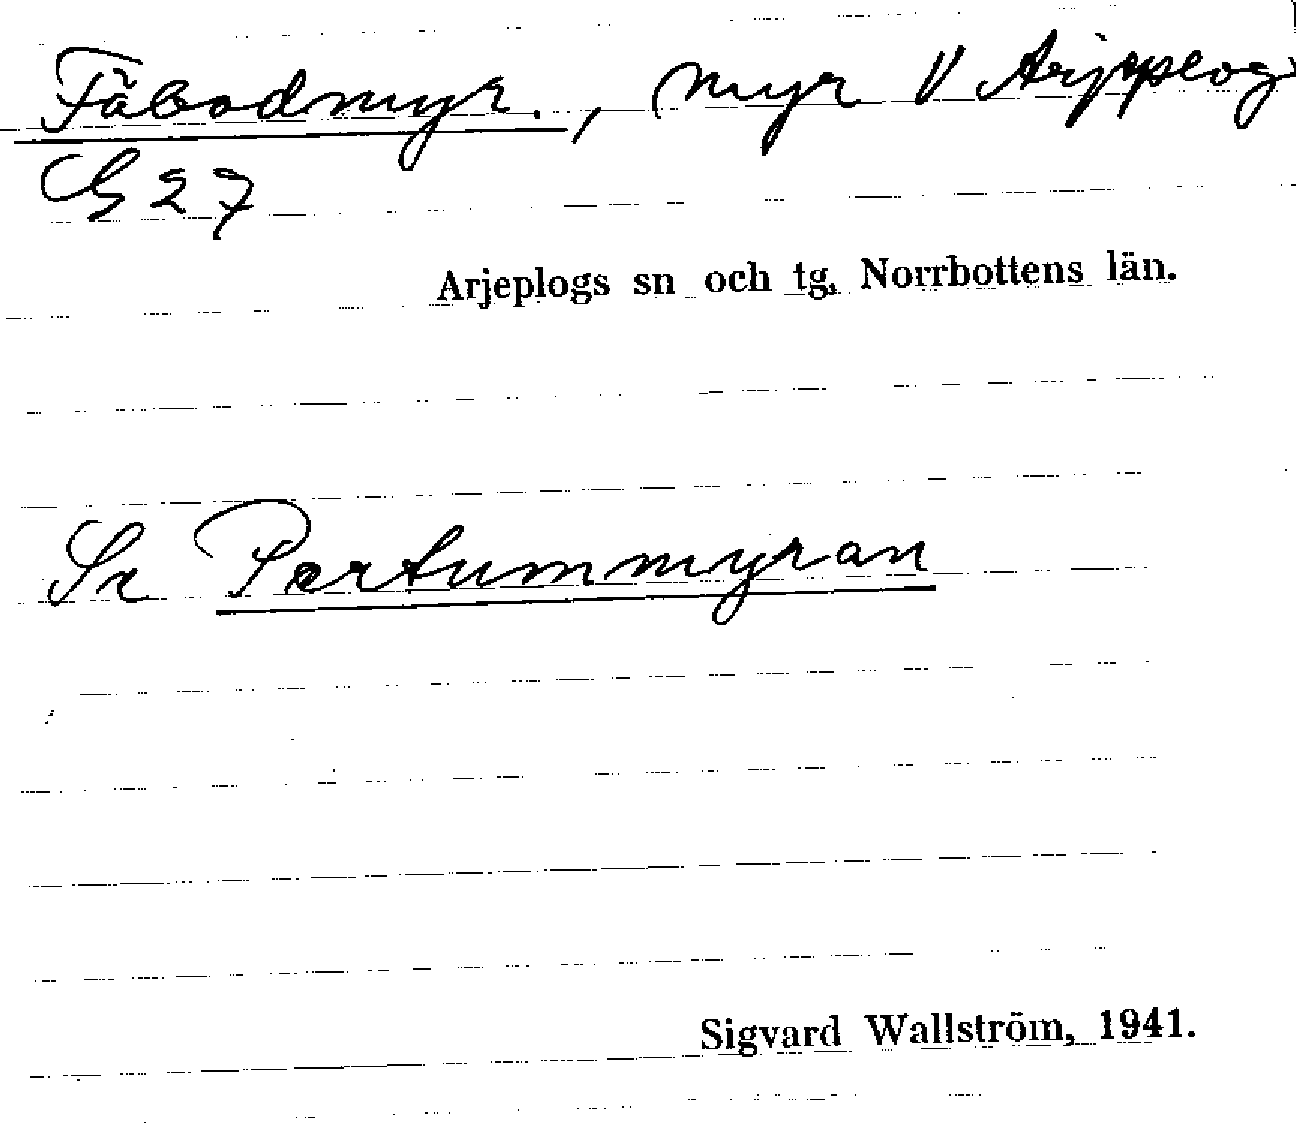 Fäbodmyr., myr V Arjeplog
G 27
Arjeplogs sn och tg. Norrbottens län.
Se Partummyran
Sigvard Wallström, 1941.